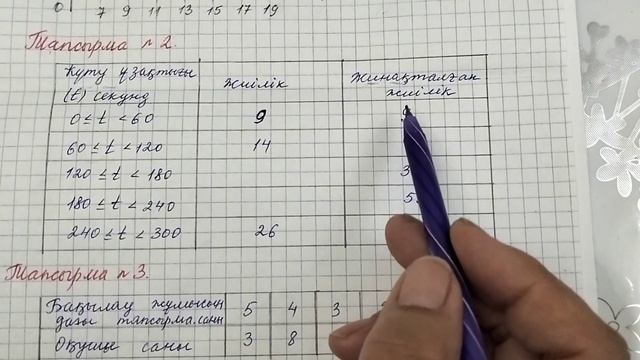 0 7 9 11 13 15 17 19
Тапсырма №2.
Күту ұзақтығы
(t) секунд
жиілік
Жинақталған
жиілік
0 ≤ t < 60 9
60 ≤ t < 120 14
120 ≤ t < 180 3
180 ≤ t < 240 5
240 ≤ t < 300 26
Тапсырма №3.
Бақылау жұмысын 5 4 3
дағы тапсырма саны
Оқушы саны 3 8